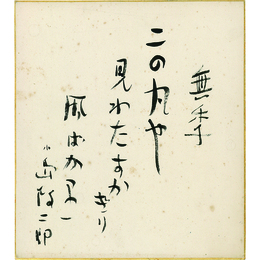 無季
二の丸や
見わたすか
ぎり
風ばかり
小島政二郎